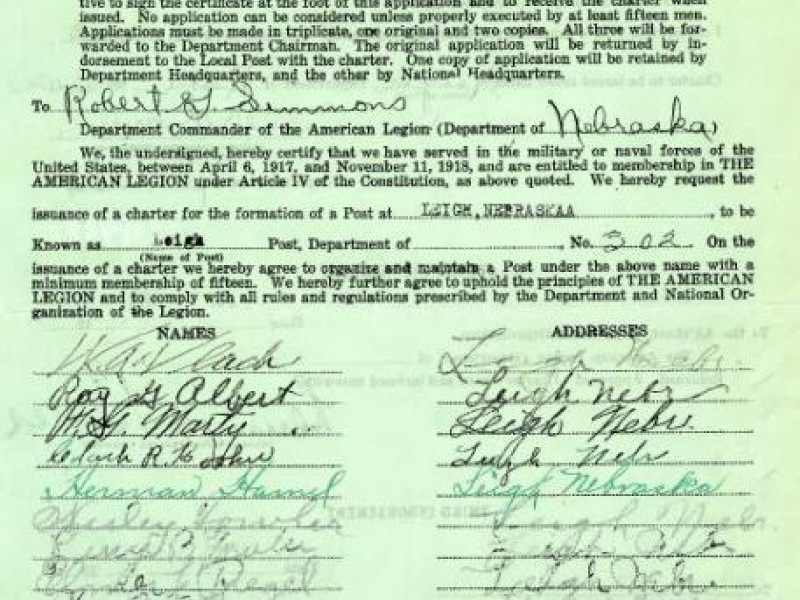 tive to sign the certificate at the foot of this application and to receive the charter when
issued. No application can be considered unless properly executed by at least fifteen men.
Applications must be made in triplicate, one original and two copies. All three will be for-
warded to the Department Chairman. The original application will be returned by in-
dorsement to the Local Post with the charter. One copy of application will be retained by
Department Headquarters, and the other by National Headquarters.
To Robert G. Simmons
Department Commander of the American Legion (Department of Nebraska)
We, the undersigned, hereby certify that we have served in the military or naval forces of the
United States, between April 6, 1917, and November 11, 1918, and are entitled to membership in THE
AMERICAN LEGION under Article IV of the Constitution, as above quoted. We hereby request the
issuance of a charter for the formation of a Post at LEIGH, NEBRASKAA, to be
Known as Leigh Post, Department of , No. 302 On the
(Name of Post)
issuance of a charter we hereby agree to organize and maintain a Post under the above name with a
minimum membership of fifteen. We hereby further agree to uphold the principles of THE AMERICAN
LEGION and to comply with all rules and regulations prescribed by the Department and National Or-
ganization of the Legion.
NAMES ADDRESSES
Leigh Nebr.
Ray G. Albert Leigh Nebr
M. G. Marty Leigh Nebr.
Leigh Nebr
Herman Hamel Leigh Nebraska
Wesley Fowler Leigh Nebr.
Fowler Leigh
Leigh Nebr.